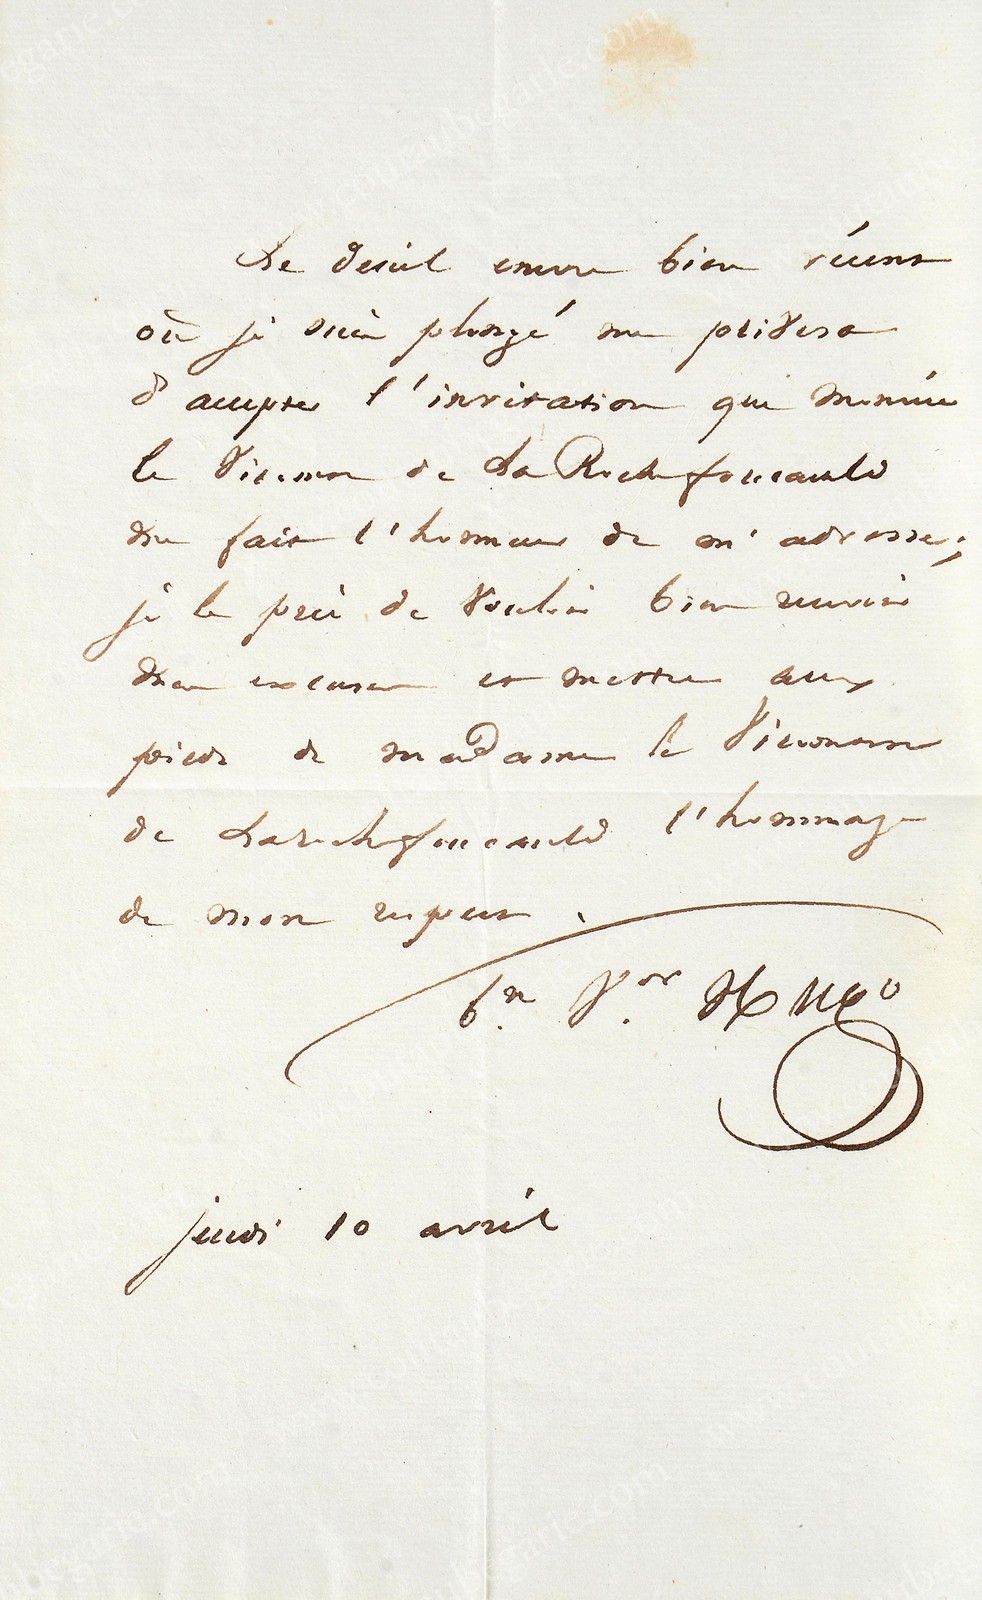 Le deuil encore bien récent
où je suis plongé me privera
d'accepter l'invitation que Monsieur
le Vicomte de La Rochefoucauld
me fait l'honneur de m'adresser ;
je le prie de vouloir bien recevoir
mes excuses et mettre aux
pieds de Madame la Vicomtesse
de Larochefoucauld l'hommage
de mon respect.
Bn. Vor. Hugo
jeudi 10 avril